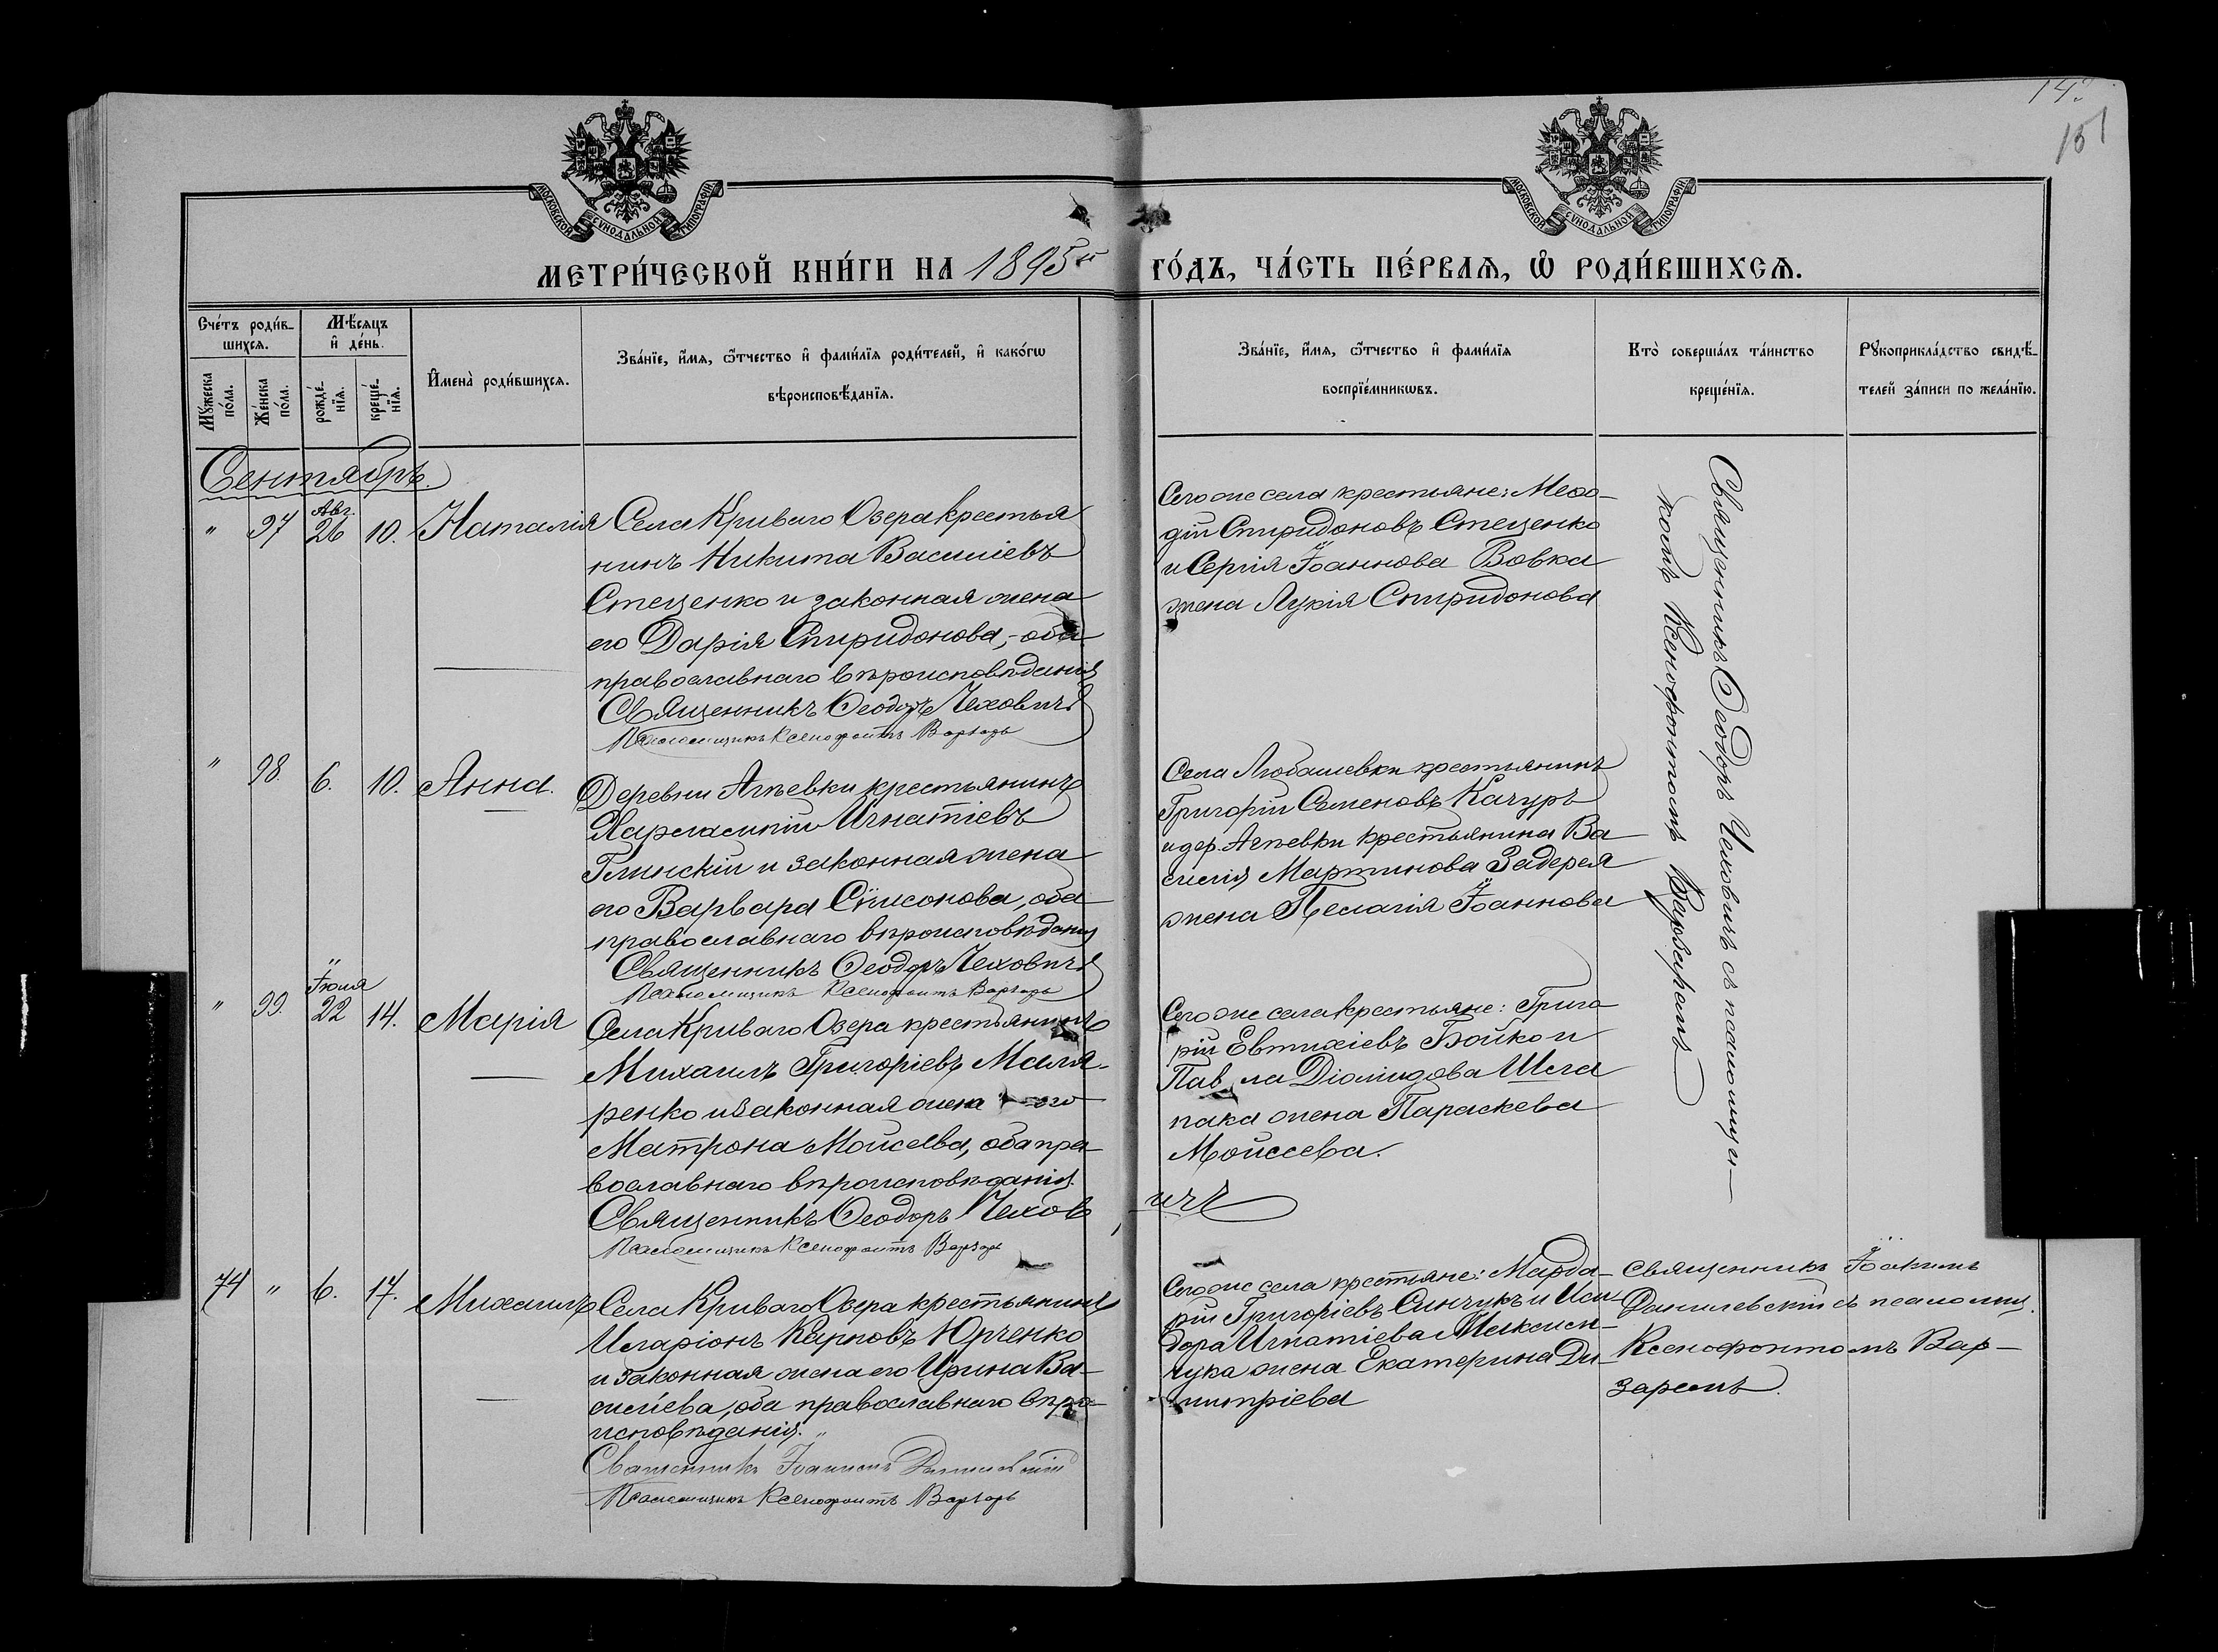 151
МОСКОВСКОЙ СУНОДАЛЬНОЙ ТИПОГРАФІИ
МОСКОВСКОЙ СУНОДАЛЬНОЙ ТИПОГРАФІИ
МЕТРИ́ЧЕСКОЙ КНИ́ГИ НА 1895й ГО́ДЪ, ЧА́СТЬ ПЕ́РВАѦ, Ѽ РОДИ́ВШИХСѦ.
Сче́тъ роди́в-
шихсѧ.
Мꙋ́жеска по́ла.
Же́нска по́ла.
Мѣ́сѧцъ
и҆ де́нь.
рожде́-
нїѧ.
креще́-
нїѧ.
И҆мена̀ роди́вшихсѧ.
Зва́нїе, и҆́мѧ, ѻ҆́тчество и҆ фами́лїѧ роди́телей, и҆ како́гѡ
вѣроисповѣ́данїѧ.
Зва́нїе, и҆́мѧ, ѻ҆́тчество и҆ фами́лїѧ
воспрїе́мникѡвъ.
Кто̀ соверша́лъ та́инство
креще́нїѧ.
Рꙋкоприкла́дство свидѣ́-
телей за́писи по жела́нїю.
Сентябрь.
" 97 Авг. 26 10. Наталія
Села Криваго Озера крестья
нинъ Никита Василіевъ
Стеценко и законная жена
его Дарія Спиридонова, - оба
православнаго вѣроисповѣданія
Священникъ Ѳеодоръ Чеховичъ
Псаломщикъ Ксенофонтъ Варзарь
Сего же села крестьяне: Меѳо-
дій Спиридоновъ Стеценко
и Сергія Іоаннова Вовка
жена Лукія Спиридонова
Священникъ Ѳеодоръ Чеховичъ съ псаломщи-
комъ Ксенофонтомъ Варзаремъ
" 98. 6. 10. Анна.
Деревни Агѣевки крестьянинъ
Харлампій Игнатіевъ
Глинскій и законная жена
его Варвара Симонова, оба
православнаго вѣроисповѣданія
Священникъ Ѳеодоръ Чеховичъ
Псаломщикъ Ксенофонтъ Варзарь
Села Любашевки крестьянинъ
Григорій Семеновъ Качуръ
и дер. Агѣевки крестьянина Ва
силія Мартинова Задерея
жена Пелагія Іоаннова
" 99. Іюля 22 14. Марія
Села Криваго Озера крестьянинъ
Михаилъ Григоріевъ Маля-
ренко и законная жена его
Матрона Мойсеева, оба пра-
вославнаго вѣроисповѣданія.
Священникъ Ѳеодоръ Чехов
ичъ
Псаломщикъ Ксенофонтъ Варзарь
Сего же села крестьяне: Григо
рій Евтихіевъ Бойко и
Павла Діомидова Шла
пака жена Параскева
Мойсеева.
74 " 6. 17. Михаилъ
Села Криваго Озера крестьянинъ
Иларіонъ Карповъ Юрченко
и законная жена его Ирина Ва-
силіева, оба православнаго вѣро-
исповѣданія.
Священникъ Іоакимъ Данилевскій
Псаломщикъ Ксенофонтъ Варзарь
Сего же села крестьяне: Марда-
рій Григоріевъ Синчукъ и Иси
дора Игнатіева Максим-
чука жена Екатерина Ди-
митріева
Священникъ Іоакимъ
Данилевскій съ псаломщ.
Ксенофонтомъ Вар-
заремъ.